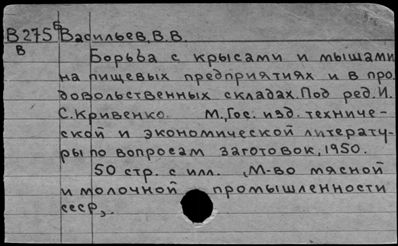 В275 Б Васильев, В.В.
В
Борьба с крысами и мышами
на пищевых предприятиях и в про
довольственных складах. Под ред. И.
С. Кривенко. М., Гос. изд. техниче-
ской и экономической литерату-
ры по вопросам заготовок, 1950.
50 стр. с илл. (М-во мясной
и молочной промышленности
СССР).